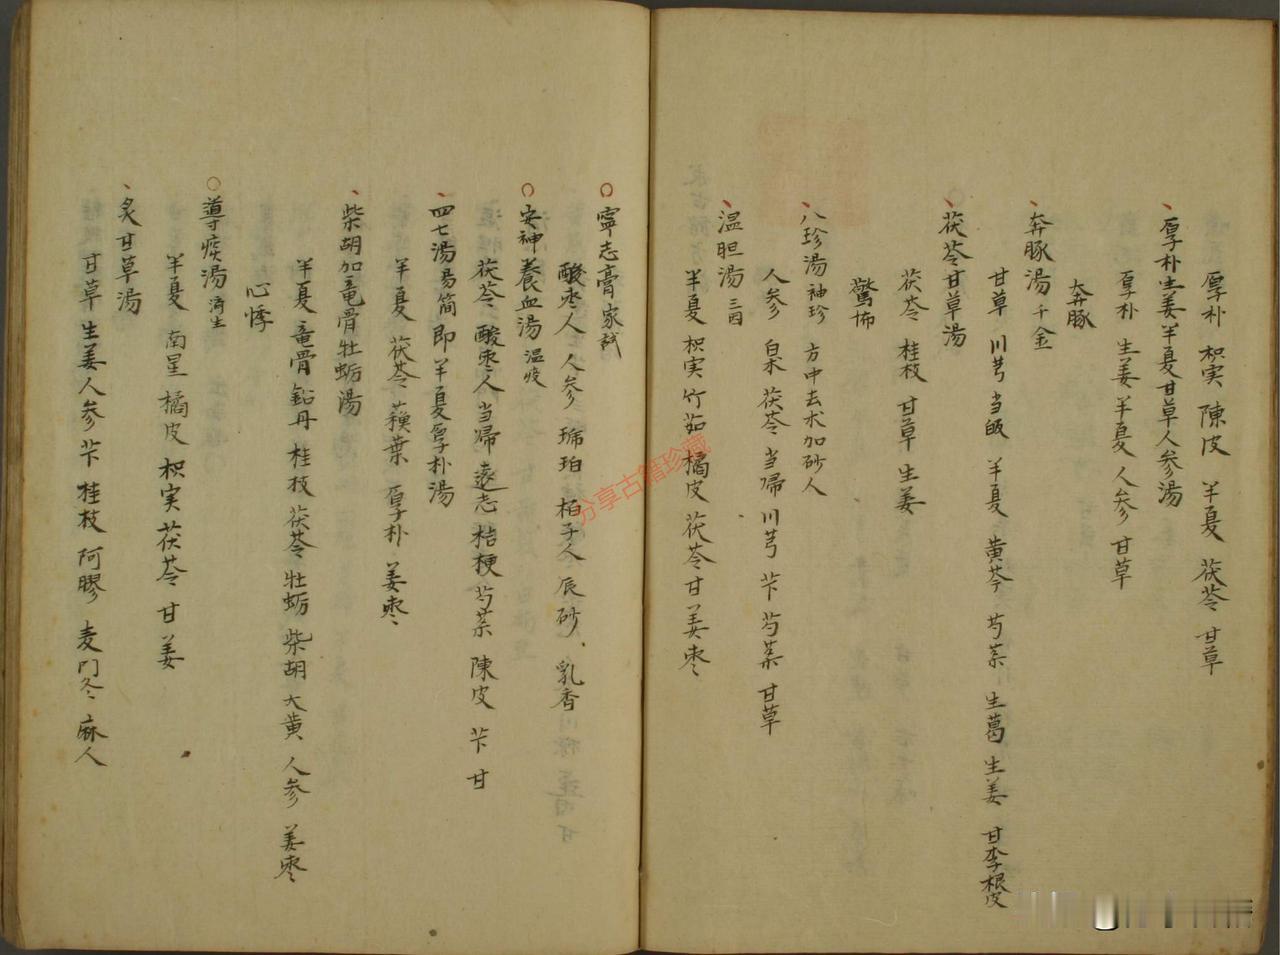 厚朴 枳実 陳皮 半夏 茯苓 甘草
厚朴生姜半夏甘草人参湯
厚朴 生姜 半夏 人参 甘草
奔豚
奔豚湯 千金
甘草 川芎 当皈 半夏 黄芩 芍薬 生葛 生姜 甘李根皮
茯苓甘草湯
茯苓 桂枝 甘草 生姜
驚怖
八珍湯 袖珍 方中去朮加砂人
人参 白朮 茯苓 当帰 川芎 芐 芍薬 甘草
温胆湯 三因
半夏 枳実 竹茹 橘皮 茯苓 甘 姜 枣
寧志膏 家試
酸枣人 人参 琥珀 栢子人 辰砂 乳香
安神養血湯 温疫
茯苓 酸枣人 当帰 遠志 桔梗 芍薬 陳皮 芐 甘
四七湯 易簡 即半夏厚朴湯
半夏 茯苓 蘓葉 厚朴 姜枣
柴胡加竜骨牡蛎湯
半夏 竜骨 鉛丹 桂枝 茯苓 牡蛎 柴胡 大黄 人参 姜枣
心悸
導痰湯 済生
半夏 南星 橘皮 枳実 茯苓 甘 姜
炙甘草湯
甘草 生姜 人参 芐 桂枝 阿膠 麦門冬 麻人
分享古籍珍藏